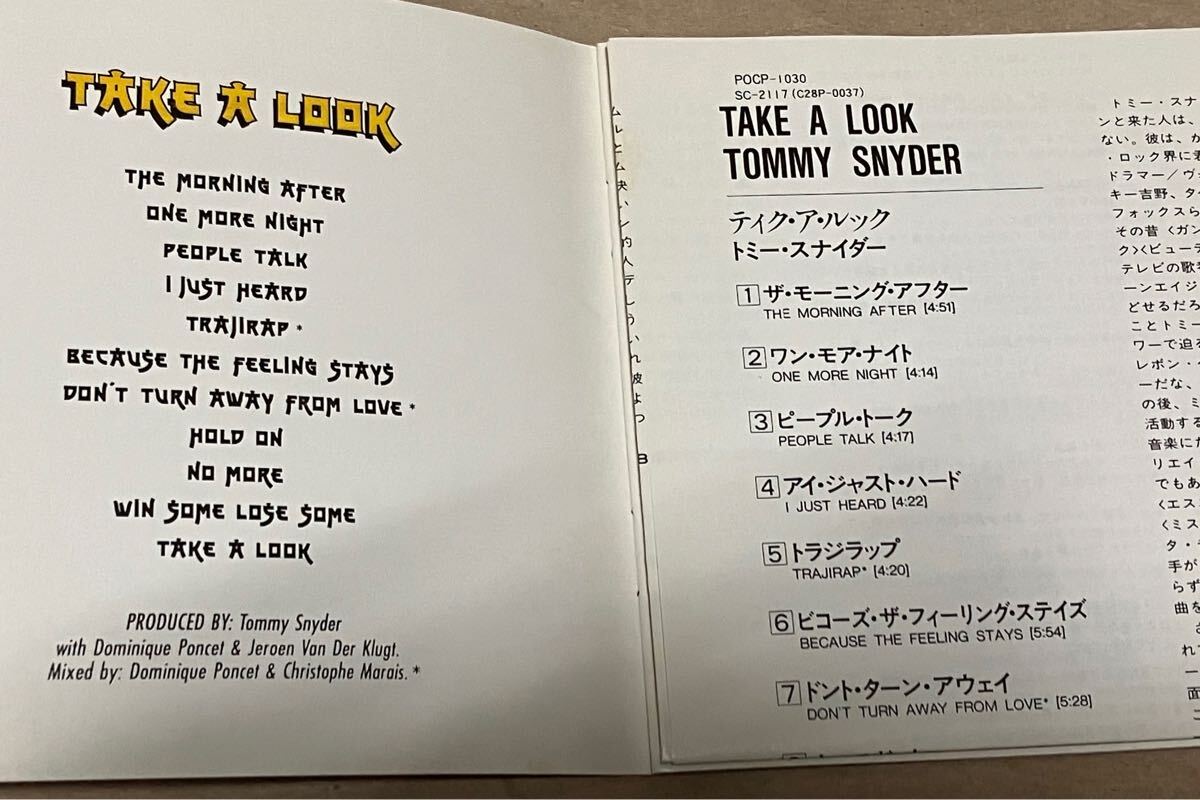 TAKE A LOOK
THE MORNING AFTER
ONE MORE NIGHT
PEOPLE TALK
I JUST HEARD
TRAJIRAP *
BECAUSE THE FEELING STAYS
DON'T TURN AWAY FROM LOVE *
HOLD ON
NO MORE
WIN SOME LOSE SOME
TAKE A LOOK
PRODUCED BY: Tommy Snyder
with Dominique Poncet & Jeroen Van Der Klugt.
Mixed by: Dominique Poncet & Christophe Marais. *
POCP-1030
SC-2117 (C28P-0037)
TAKE A LOOK
TOMMY SNYDER
ティク・ア・ルック
トミー・スナイダー
1 ザ・モーニング・アフター
THE MORNING AFTER [4:51]
2 ワン・モア・ナイト
ONE MORE NIGHT [4:14]
3 ピープル・トーク
PEOPLE TALK [4:17]
4 アイ・ジャスト・ハード
I JUST HEARD [4:22]
5 トラジラップ
TRAJIRAP* [4:20]
6 ビコーズ・ザ・フィーリング・ステイズ
BECAUSE THE FEELING STAYS [5:54]
7 ドント・ターン・アウェイ
DON'T TURN AWAY FROM LOVE* [5:28]
トミー・スナ
ンと来た人は、
ない。彼は、か
・ロック界に君
ドラマー/ヴォ
キー吉野、タ
フォックスら
その昔〈ガン
ク〉〈ビューテ
テレビの歌
ーンエイジ
どせるだろ
ことトミー
ワーで迫る
レポン・
ーだな、
の後、ミ
活動する
音楽にた
リエイ
でもあ
〈エス
〈ミス
タ・
手が
らず
曲を
さ
れて
一
面
こ